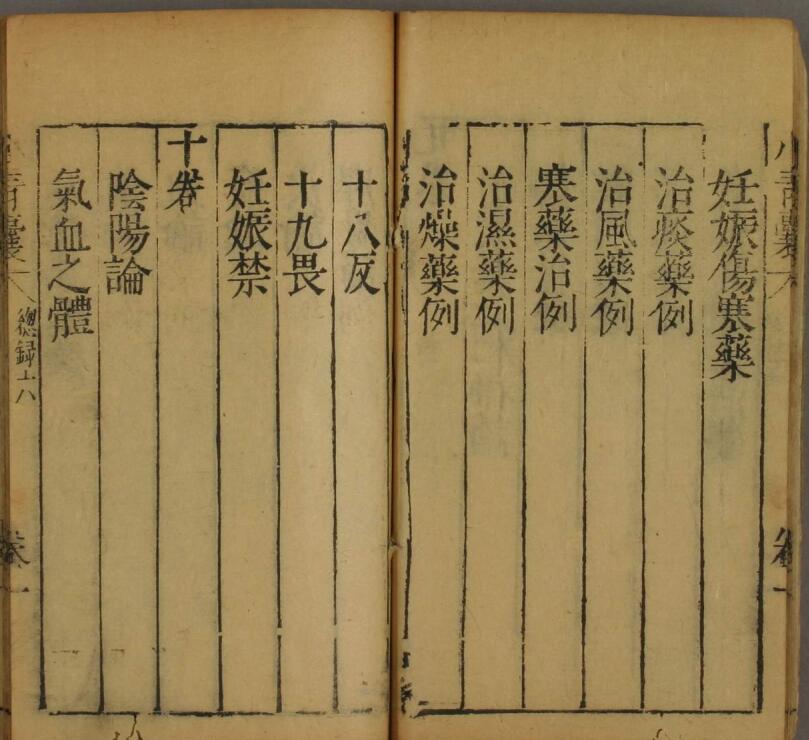 妊娠傷寒藥
治痰藥例
治風藥例
寒藥治例
治濕藥例
治燥藥例
十八反
十九畏
妊娠禁
十卷
陰陽論
氣血之體
總録
卷一
卷一